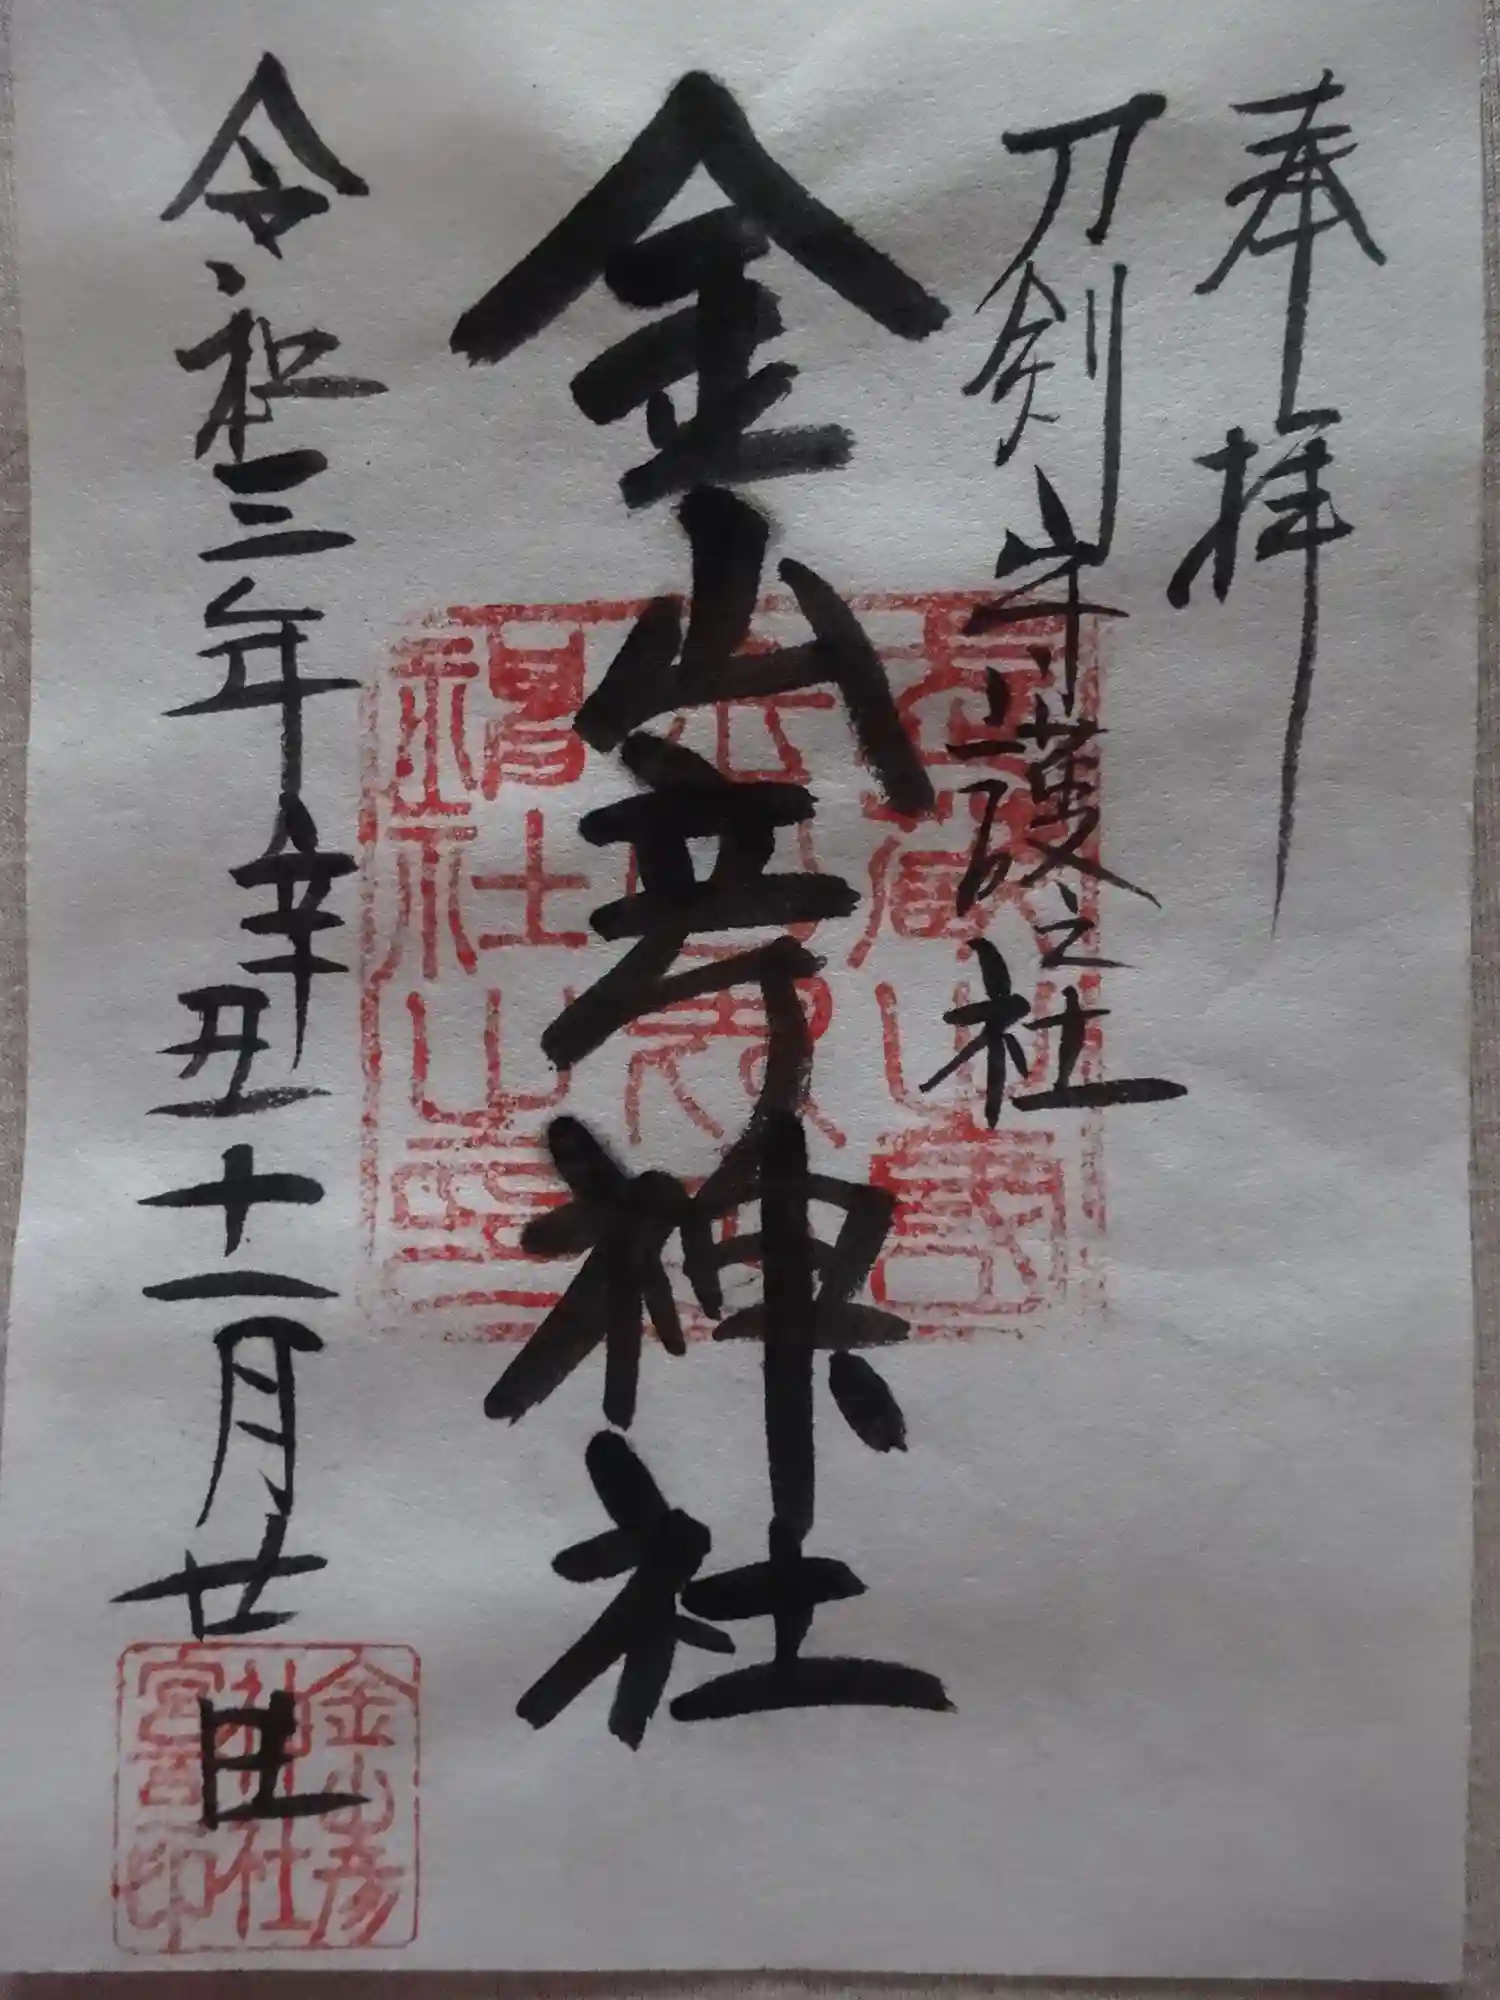 奉拝
刀剣守護之社
金山彦神社
令和三年辛丑十一月廿日
金山彦
神社
宮司印